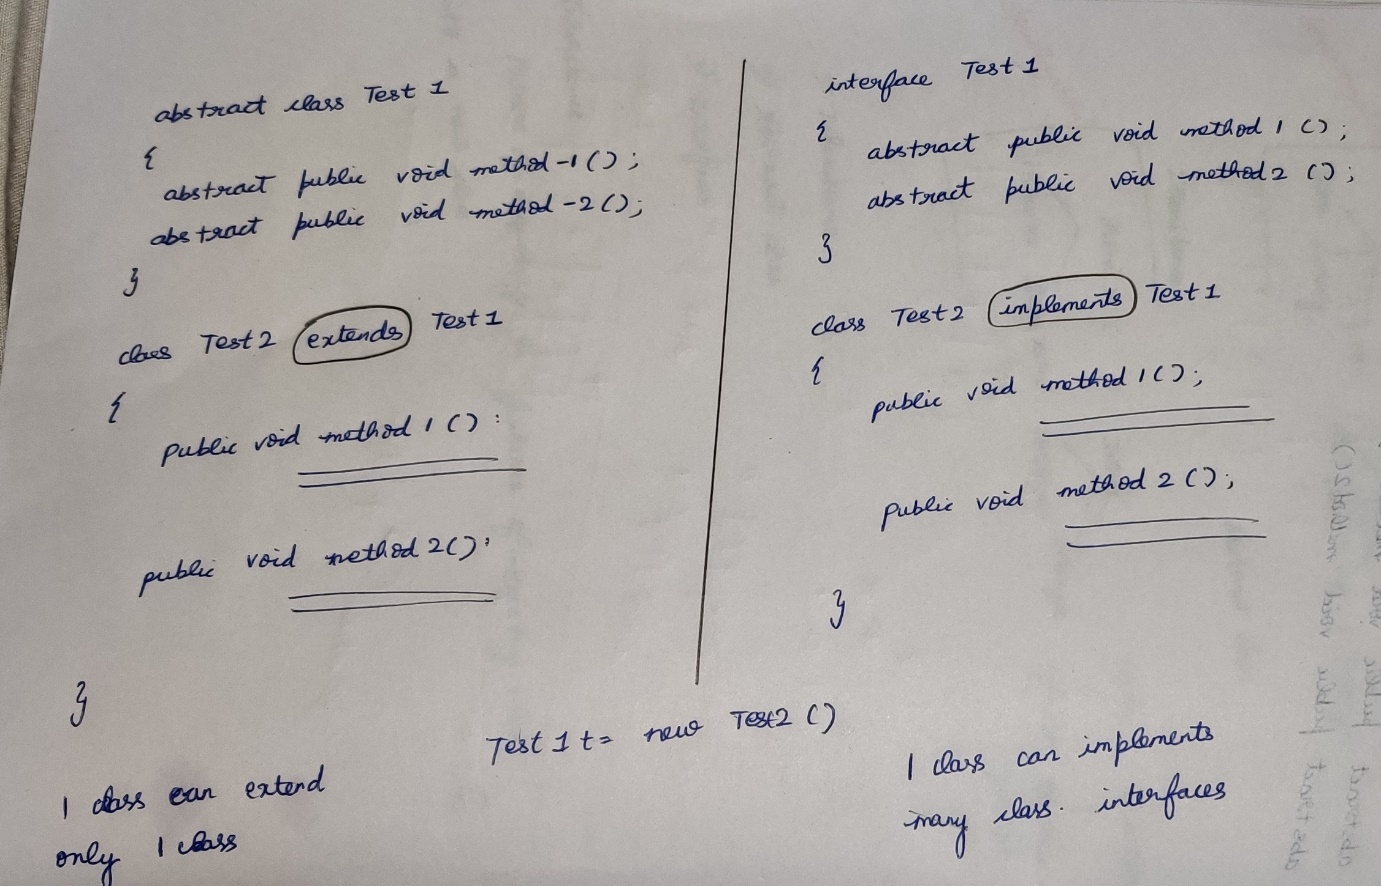 abstract class Test 1
{
abstract public void method-1();
abstract public void method-2();
}
class Test2 extends Test1
{
public void method 1 () :
public void method 2();
}
1 class can extend
only 1 class
interface Test 1
{
abstract public void method 1 ();
abstract public void method 2 ();
}
class Test2 implements Test 1
{
public void method 1();
public void method 2 ();
}
Test 1 t = new Test2 ()
1 class can implements
many class. interfaces